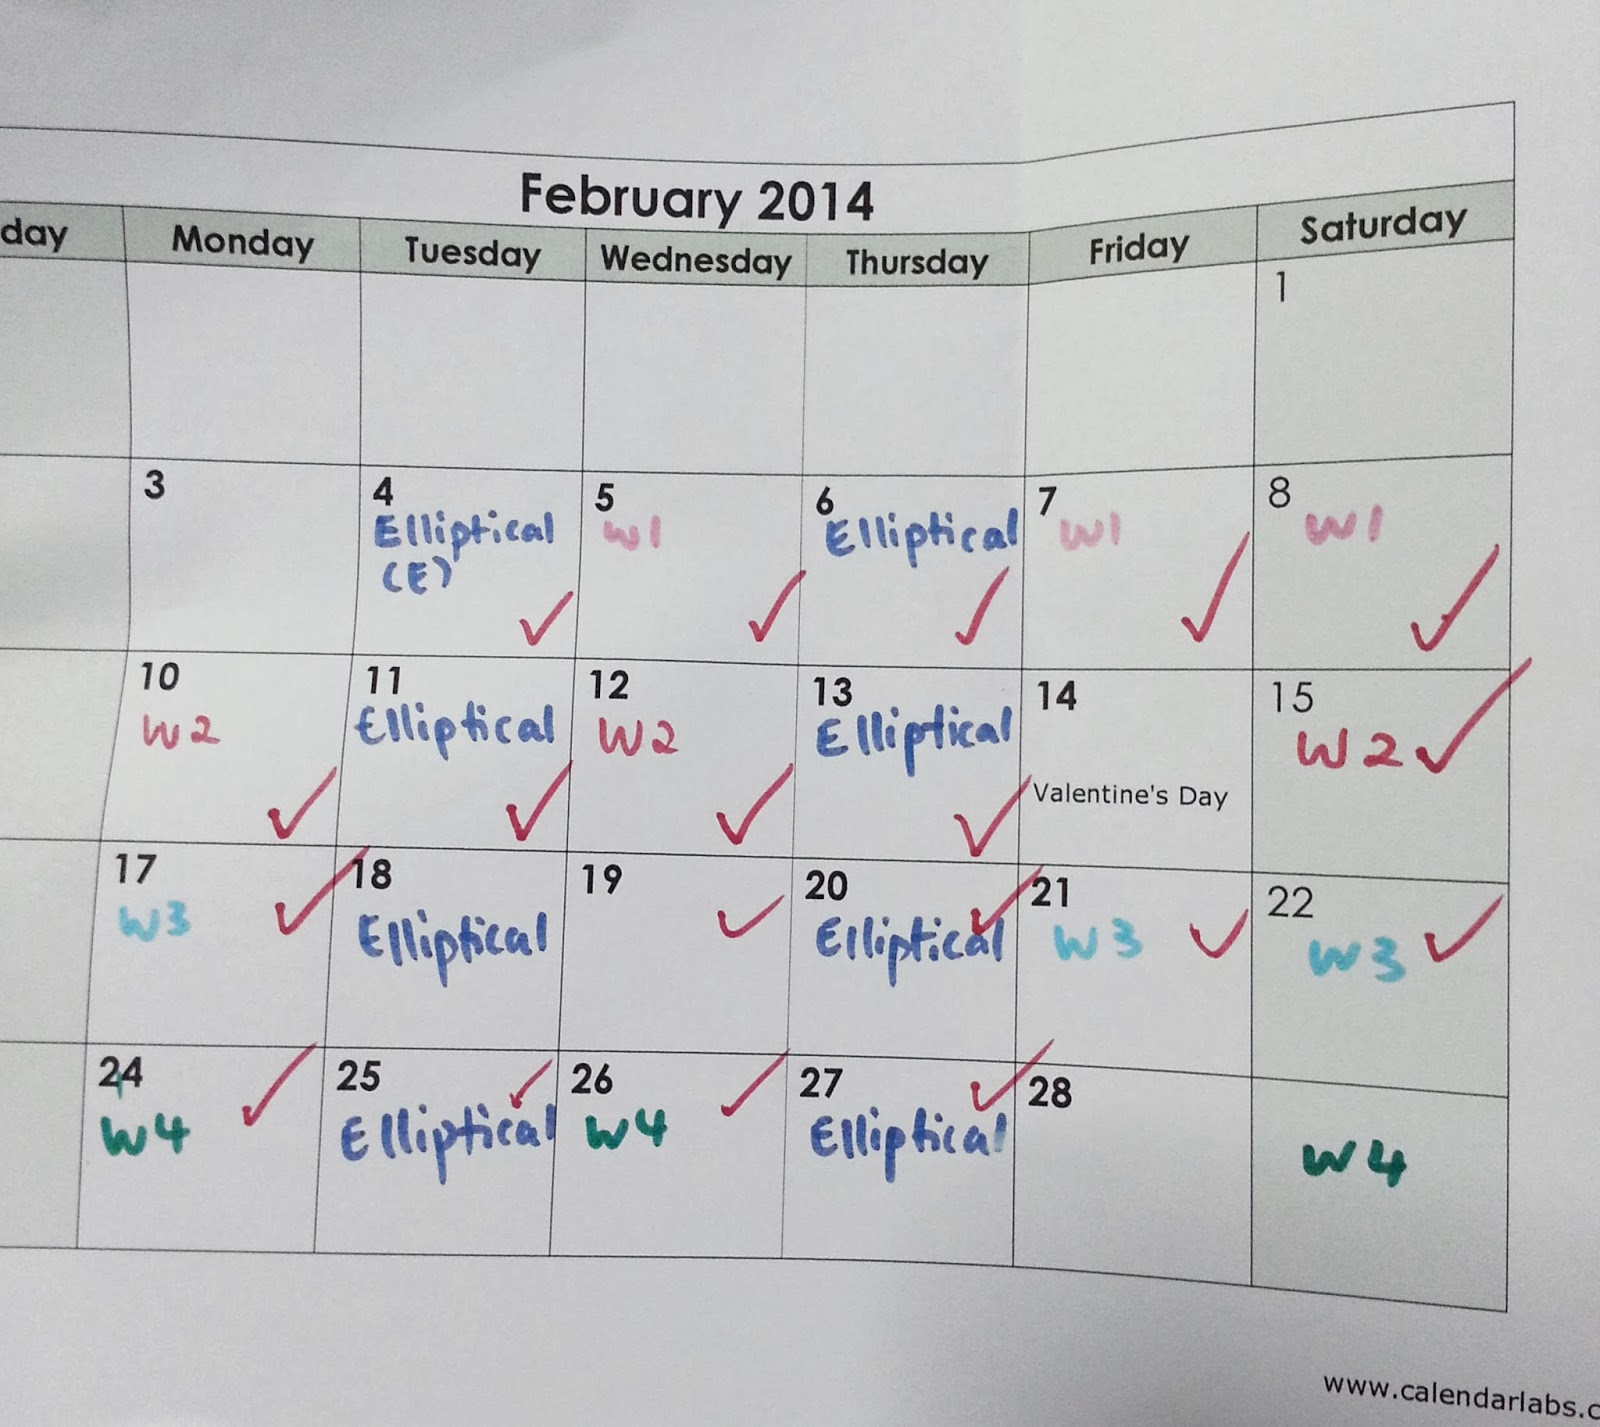 February 2014
day Monday Tuesday Wednesday Thursday Friday Saturday
1
3 4 5 6 7 8
Elliptical W1 Elliptical W1 W1
(E)
10 11 12 13 14 15
W2 Elliptical W2 Elliptical W2
Valentine's Day
17 18 19 20 21 22
W3 Elliptical Elliptical W3 W3
24 25 26 27 28
W4 Elliptical W4 Elliptical W4
www.calendarlabs.c